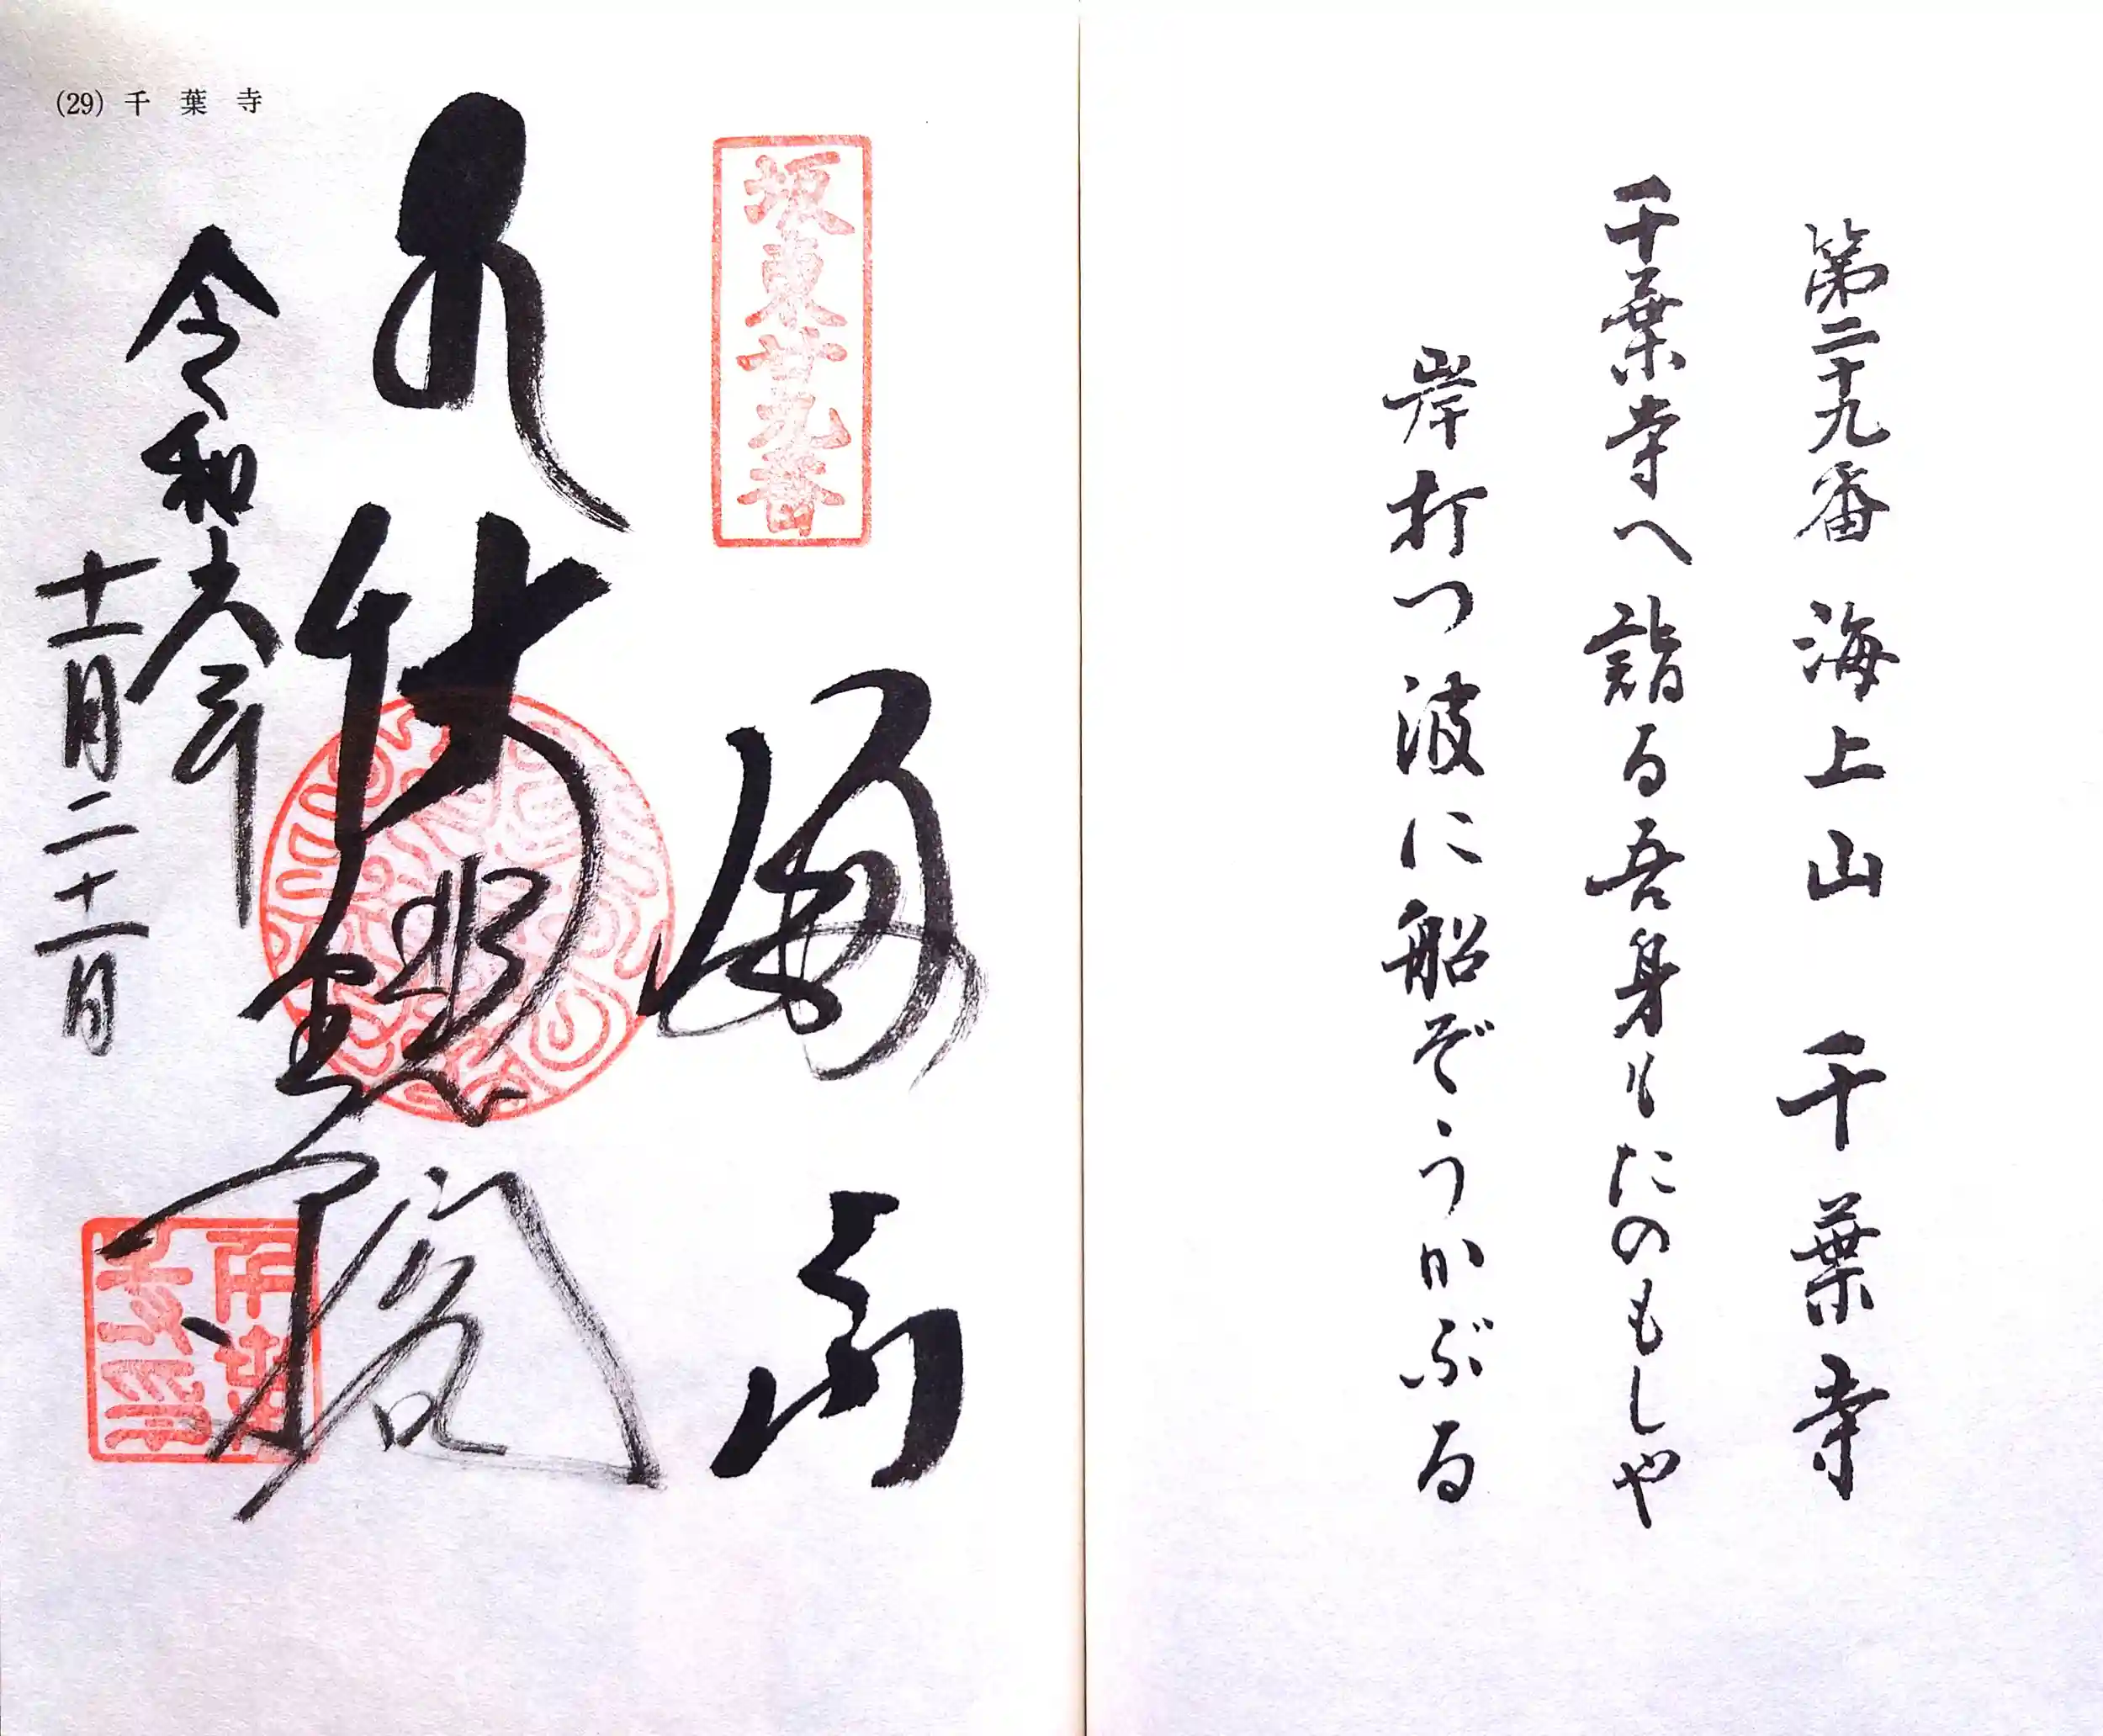 第二十九番 海上山 千葉寺
千葉寺へ詣る吾身もたのもしや
岸打つ波に船ぞうかぶる
坂東廿九番
海上山
令和六年
十一月二十一日
(29) 千葉寺